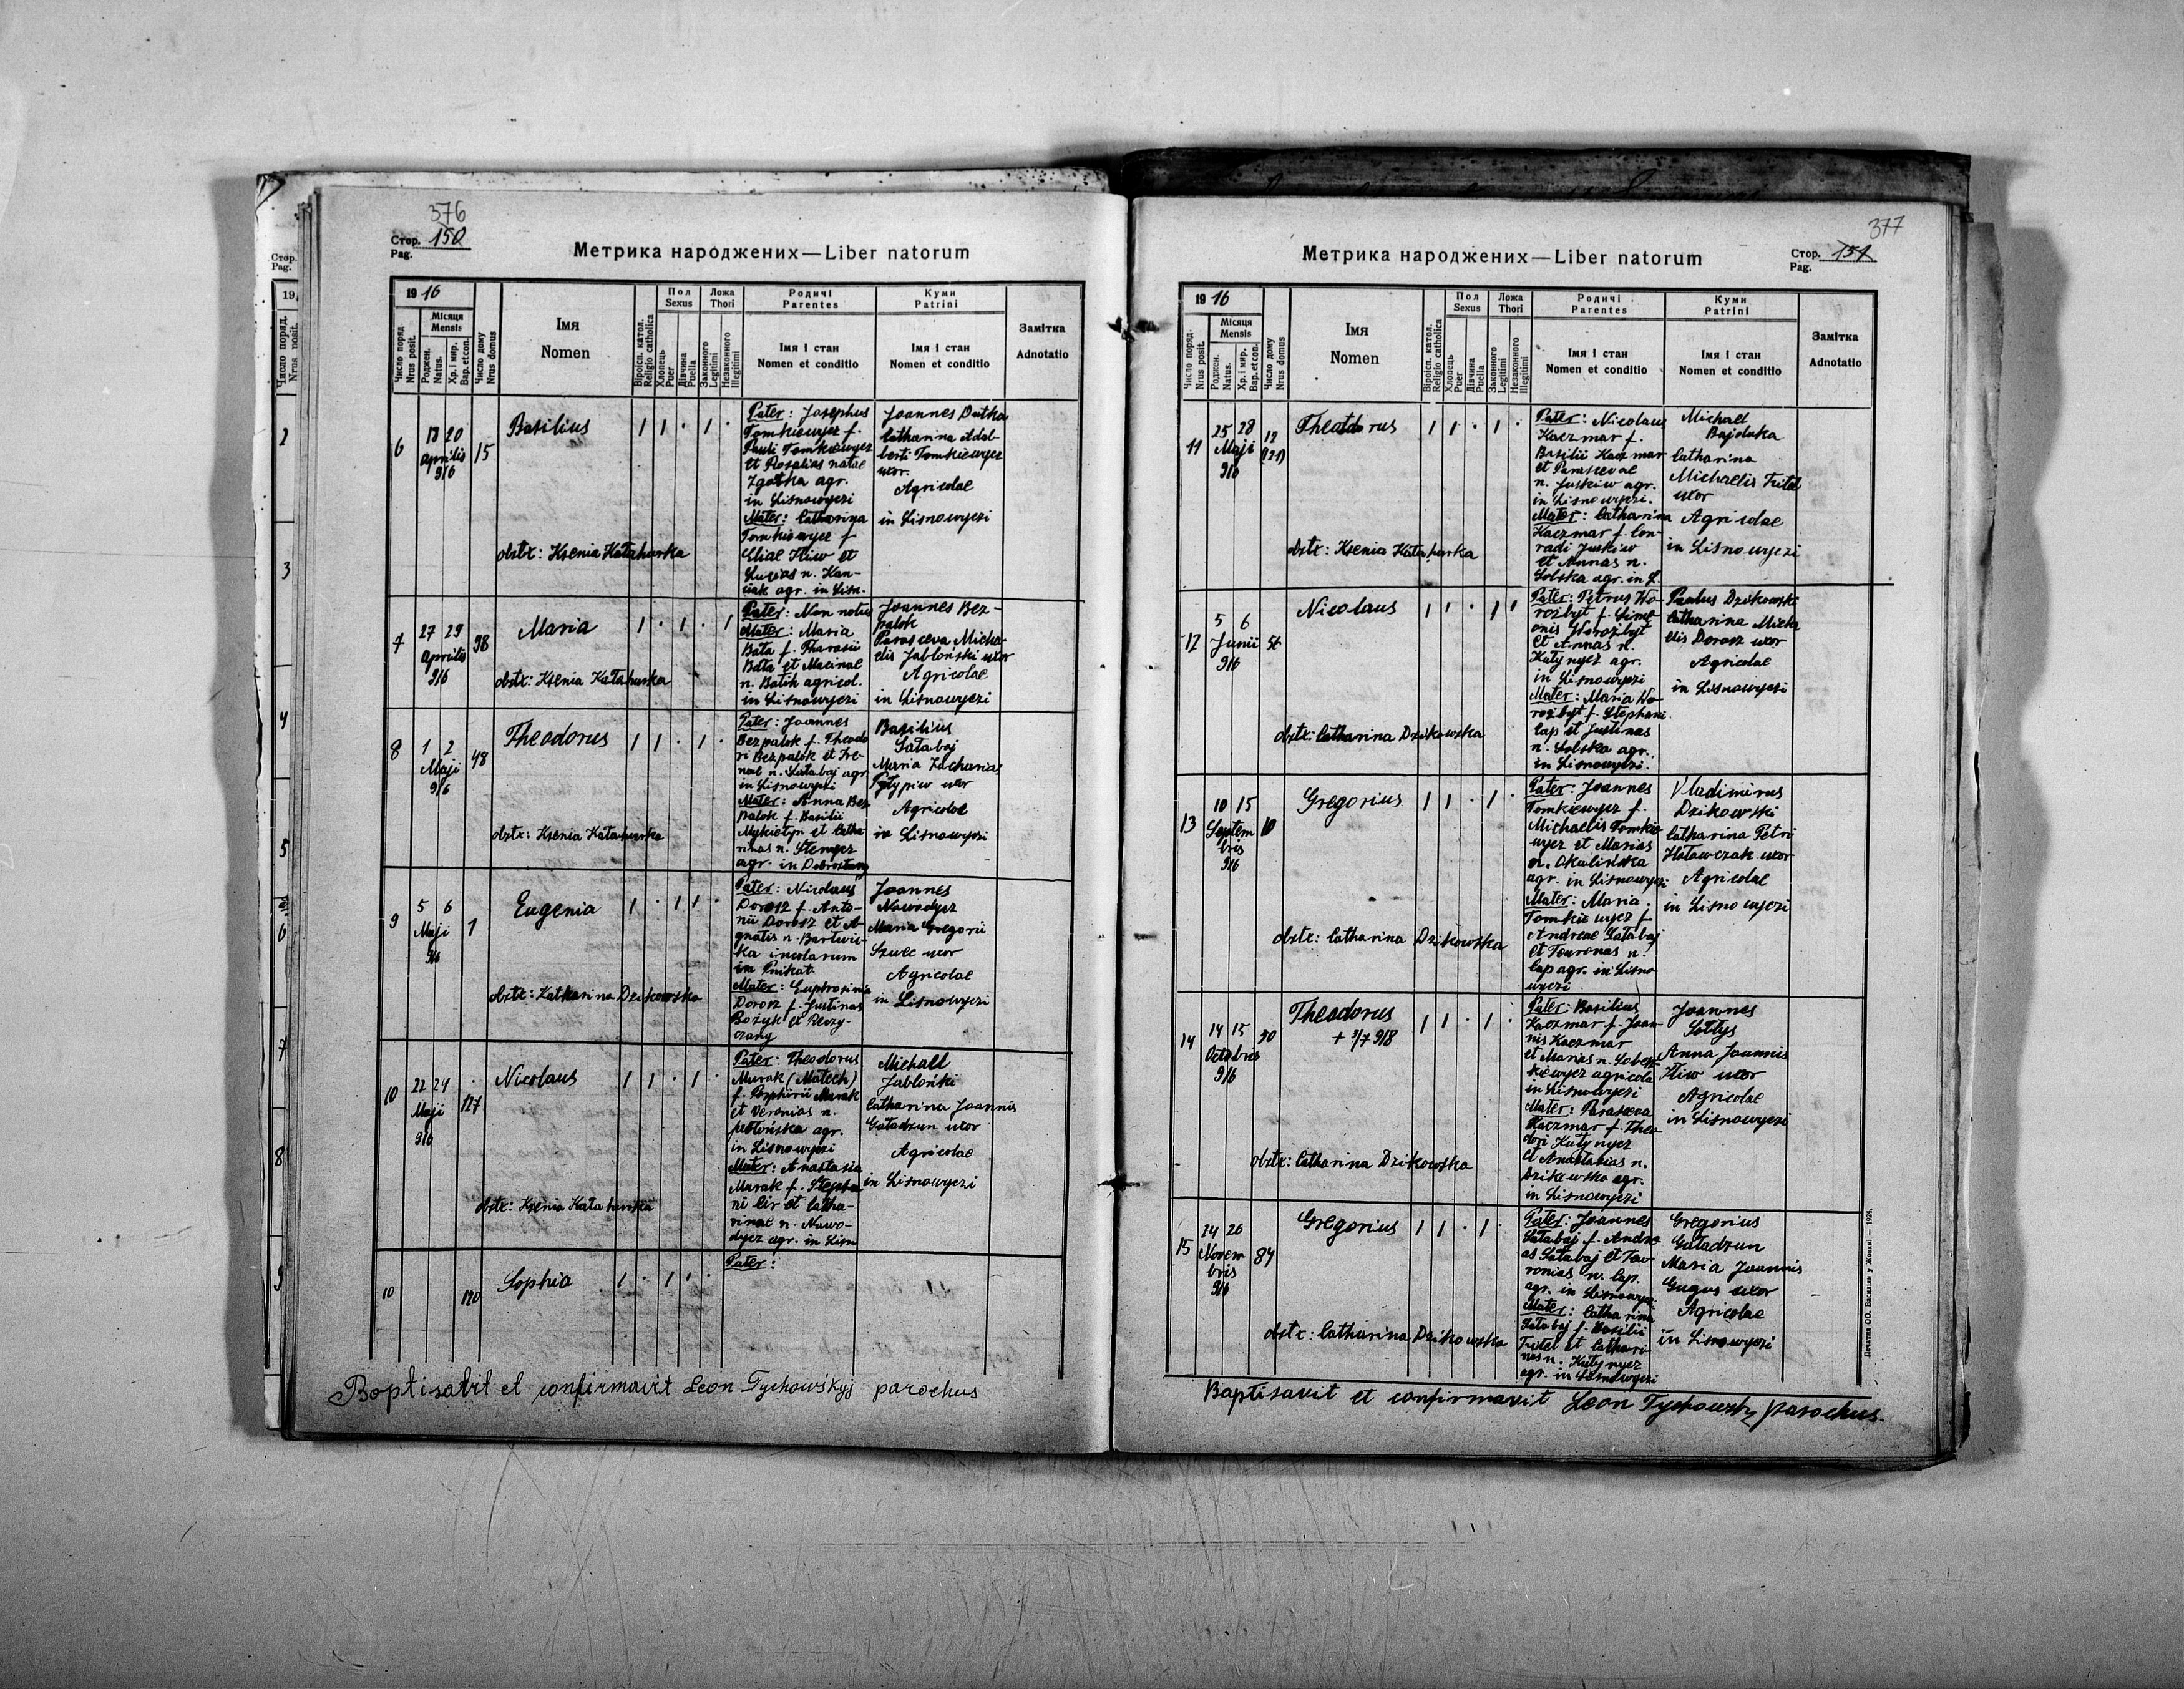 376
Стор. 150
Pag.
Метрика народжених—Liber natorum
1916
Число поряд.
Nrus posit.
Місяця
Mensis
Роджен.
Natus.
Хр. і мир.
Bap. et con.
Число дому
Nrus domus
Імя
Nomen
Віроісп. катол.
Religio catholica
Пол
Sexus
Хлопець
Puer
Дівчина
Puella
Ложа
Thori
Законного
Legitimi
Незаконного
Illegitimi
Родичі
Parentes
Імя і стан
Nomen et conditio
Куми
Patrini
Імя і стан
Nomen et conditio
Замітка
Adnotatio
6
18 20
Aprilis
916
15
Basilius
1 1 · 1 ·
obstx: Ksenia Katahurka
Pater: Josephus
Tomkiewycz f.
Pauli Tomkiewycz
et Rosalias natae
Zgotka agr.
in Lisnowyczi
Mater: Catharina
Tomkiewycz f
Eliae Hiw et
Lucias n. Kan-
ciak agr. in Lisn.
Joannes Dutka
Catharina Adal-
berti Tomkiewycz
uxor.
Agricolae
in Lisnowyczi
7
27 29
Aprilis
916
98
Maria
1 · 1 · 1
obstx: Ksenia Katahurka
Pater: Non notus
Mater: Maria
Bata f. Tharasii
Bata et Macinae
n. Batih agricol.
in Lisnowyczi
Joannes Bez-
palok
Parasceva Micha-
elis Jabłoński uxor
Agricolae
in Lisnowyczi
8
1 2
Maji
916
48
Theodorus
1 1 · 1 ·
obstx: Ksenia Katahurka
Pater: Joannes
Bezpalok f. Theodo
ri Bezpalok et Ire-
nae n. Satabaj agr.
in Lisnowyczi
Mater: Anna Bez
palok f. Basilii
Mykietyn et Catha
rinas n. Stenycz
agr. in Dobrostany
Basilius
Satabaj
Maria Zacharias
Pytypiw uxor
Agricolae
in Lisnowyczi
9
5 6
Maji
916
1
Eugenia
1 · 1 1 ·
obstx: Katharina Dzikowska
Pater: Nicolaus
Dorosz f. Anto-
nii Dorosz et A-
gnatis n. Bartwic-
ka incolarum
in Pnikut
Mater: Euphrosinia
Dorosz f. Justinas
Bożyk et Reczy-
czany
Joannes
Nawodycz
Maria Gregorii
Szwec uxor
Agricolae
in Lisnowyczi
10
22 24
Maji
916
127
Nicolaus
1 1 · 1 ·
obstx: Ksenia Katahurka
Pater: Theodorus
Murak (Matech)
f. Porphirii Murak
et Veronias n.
Jabłońska agr.
in Lisnowyczi
Mater: Anastasia
Murak f. Stepha
ni Cir et Catha-
rinae n. Nawo-
dycz agr. in Lisn
Michael
Jabłoński
Catharina Joannis
Gatadzun uxor
Agricolae
in Lisnowyczi
10
120
Sophia
1 · 1 1 ·
Pater:
Baptisavit et confirmavit Leon Tychowskyj parochus
377
Стор. 151
Pag.
Метрика народжених—Liber natorum
1916
Число поряд.
Nrus posit.
Місяця
Mensis
Роджен.
Natus.
Хр. і мир.
Bap. et con.
Число дому
Nrus domus
Імя
Nomen
Віроісп. катол.
Religio catholica
Пол
Sexus
Хлопець
Puer
Дівчина
Puella
Ложа
Thori
Законного
Legitimi
Незаконного
Illegitimi
Родичі
Parentes
Імя і стан
Nomen et conditio
Куми
Patrini
Імя і стан
Nomen et conditio
Замітка
Adnotatio
11
25 28
Maji
916
12
(121)
Theodorus
1 1 · 1 ·
obstx: Ksenia Katahurka
Pater: Nicolaus
Kaczmar f.
Basilii Kaczmar
et Parascevae
n. Juskiw agr.
in Lisnowyczi.
Mater: Catharina
Kaczmar f. Con-
radi Juskiw
et Annas n.
Solska agr. in L.
Michael
Bajduka
Catharina
Michaelis Fritel
uxor
Agricolae
in Lisnowyczi
12
5 6
Junii
916
Nicolaus
1 1 · 1 1
obstx: Catharina Dzikowska
Pater: Petrus Wo-
rożbyt f. Sime-
onis Worożbyt
et Annas n.
Kutynycz agr.
in Lisnowyczi
Mater: Maria Wo-
rożbyt f. Stephani
Cap et Justinas
n. Solska agr.
in Lisnowyczi.
Paulus Dzikowski
Catharina Micha
elis Dorosz uxor
Agricolae
in Lisnowyczi
13
10 15
Septem
bris
916
10
Gregorius
1 1 · 1 ·
obstx: Catharina Dzikowska
Pater: Joannes
Tomkiewycz f.
Michaelis Tomkie
wycz et Marias
n. Okulińska
agr. in Lisnowyczi
Mater: Maria
Tomkiewycz f
Andreae Satabaj
et Tauronas n.
Cap agr. in Lisno
wyczi
Vladimirus
Dzikowski
Catharina Petri
Hotowczak uxor
Agricolae
in Lisnowyczi
14
14 15
Octobris
916
30
Theodorus
+ 3/7 918
1 1 · 1 ·
obstx: Catharina Dzikowska
Pater: Basilius
Kaczmar f. Joan-
nis Kaczmar
et Marias n. Sobest
kiewycz agricola
in Lisnowyczi
Mater: Parasceva
Kaczmar f. Theo
dori Kutynycz
et Anastasias n.
Dzikowska agr.
in Lisnowyczi
Joannes
Sołtys
Anna Joannis
Hiw uxor
Agricolae
in Lisnowyczi
15
24 26
Novem
bris
916
84
Gregorius
1 1 · 1 ·
obstx: Catharina Dzikowska
Pater: Joannes
Satabaj f. Andre
as Satabaj et Tau-
ronias n. Cap.
agr. in Lisnowyczi
Mater: Catharina
Satabaj f. Basilii
Fritel et Cathari
nas n. Kutynycz
agr. in Lisnowyczi
Gregorius
Gatadzun
Maria Joannis
Gugus uxor
Agricolae
in Lisnowyczi
Baptisavit et confirmavit Leon Tychowsky parochus.
Печатня ОО. Василіян у Жовкві — 1924.